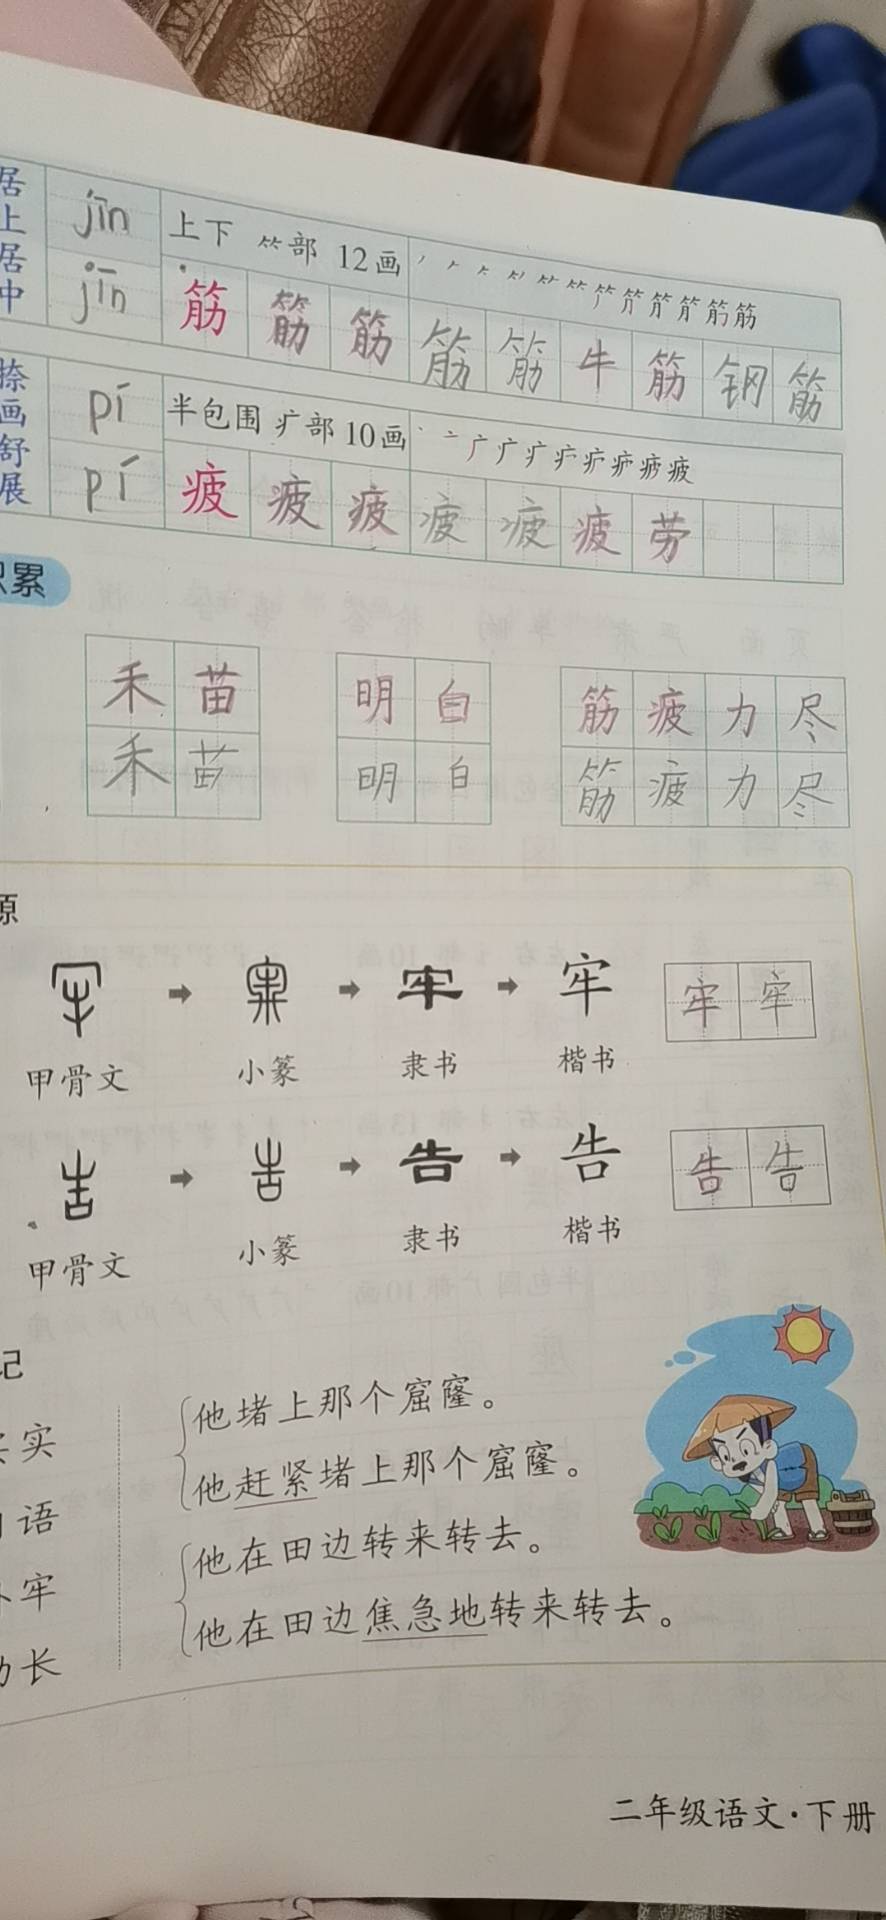 居上居中
jīn
上下 ⺮部 12画
jīn
筋 筋 筋 筋 筋 牛 筋 钢 筋
捺画舒展
pí
半包围 疒部 10画
pí
疲 疲 疲 疲 疲 疲 劳
累
禾 苗 明 白 筋 疲 力 尽
禾 苗 明 白 筋 疲 力 尽
源
牢 牢 牢 牢
甲骨文 小篆 隶书 楷书
告 告 告 告
甲骨文 小篆 隶书 楷书
记
实
语
牢
长
他堵上那个窟窿。
他赶紧堵上那个窟窿。
他在田边转来转去。
他在田边焦急地转来转去。
二年级语文·下册